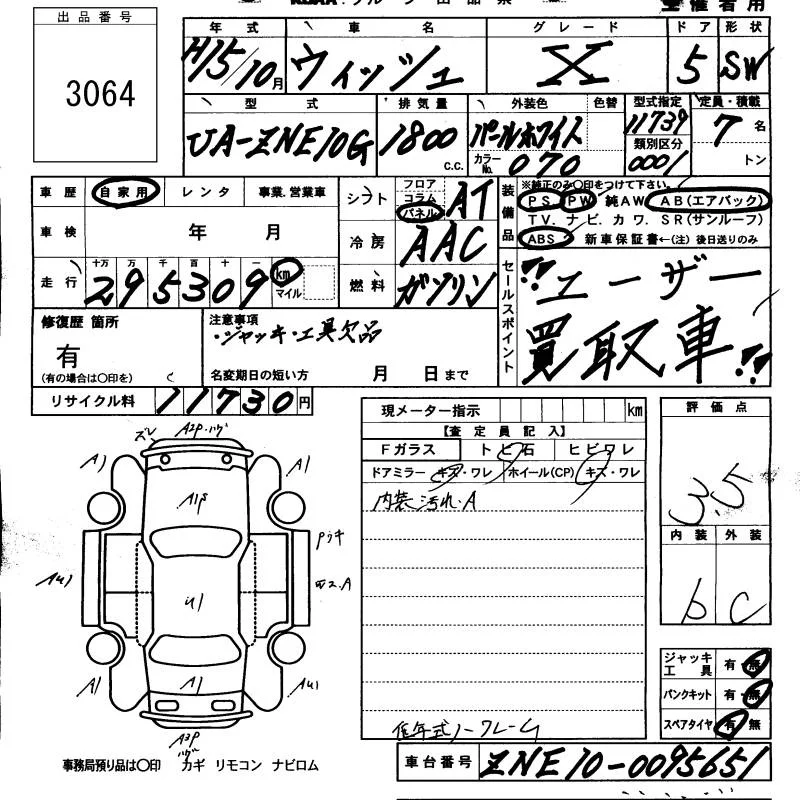 出品番号
3064
年式 車名 グレード ドア 形状
H15/10月 ウィッシュ X 5 SW
型式 排気量 外装色 色替 型式指定 定員・積載
UA-ZNE10G 1800 c.c. パールホワイト 11739 7名
類別区分
カラーNo. 070 0001 トン
車歴 自家用 レンタ 事業.営業車
シフト フロア コラム パネル AT
装備品
※純正のみ○印をつけて下さい。
PS PW 純AW AB(エアバック)
TV. ナビ. カワ. SR(サンルーフ)
ABS 新車保証書←(注)後日送りのみ
車検 年 月
冷房 AAC
走行 十万 万 千 百 十 一
295309 km マイル
燃料 ガソリン
セールスポイント
ユーザー
買取車!!
修復歴 箇所
有
(有の場合は○印を)
注意事項
・ジャッキ・工具欠品
名変期日の短い方 月 日まで
リサイクル料 11730円
現メーター指示 km
【査定員記入】
Fガラス トビ石 ヒビワレ
ドアミラー キズ・ワレ ホイール(CP) キズ・ワレ
内装汚れ.A
評価点
3.5
内装 外装
b C
ズレ A2P.ハゲ
A1 A1
A1P
AU1
U1
A1 A1 AU1
A3P
ハゲ
ジャッキ工具 有・無
パンクキット 有・無
スペアタイヤ 有・無
低年式ノークレーム
事務局預り品は○印 カギ リモコン ナビロム
車台番号 ZNE10-0095651